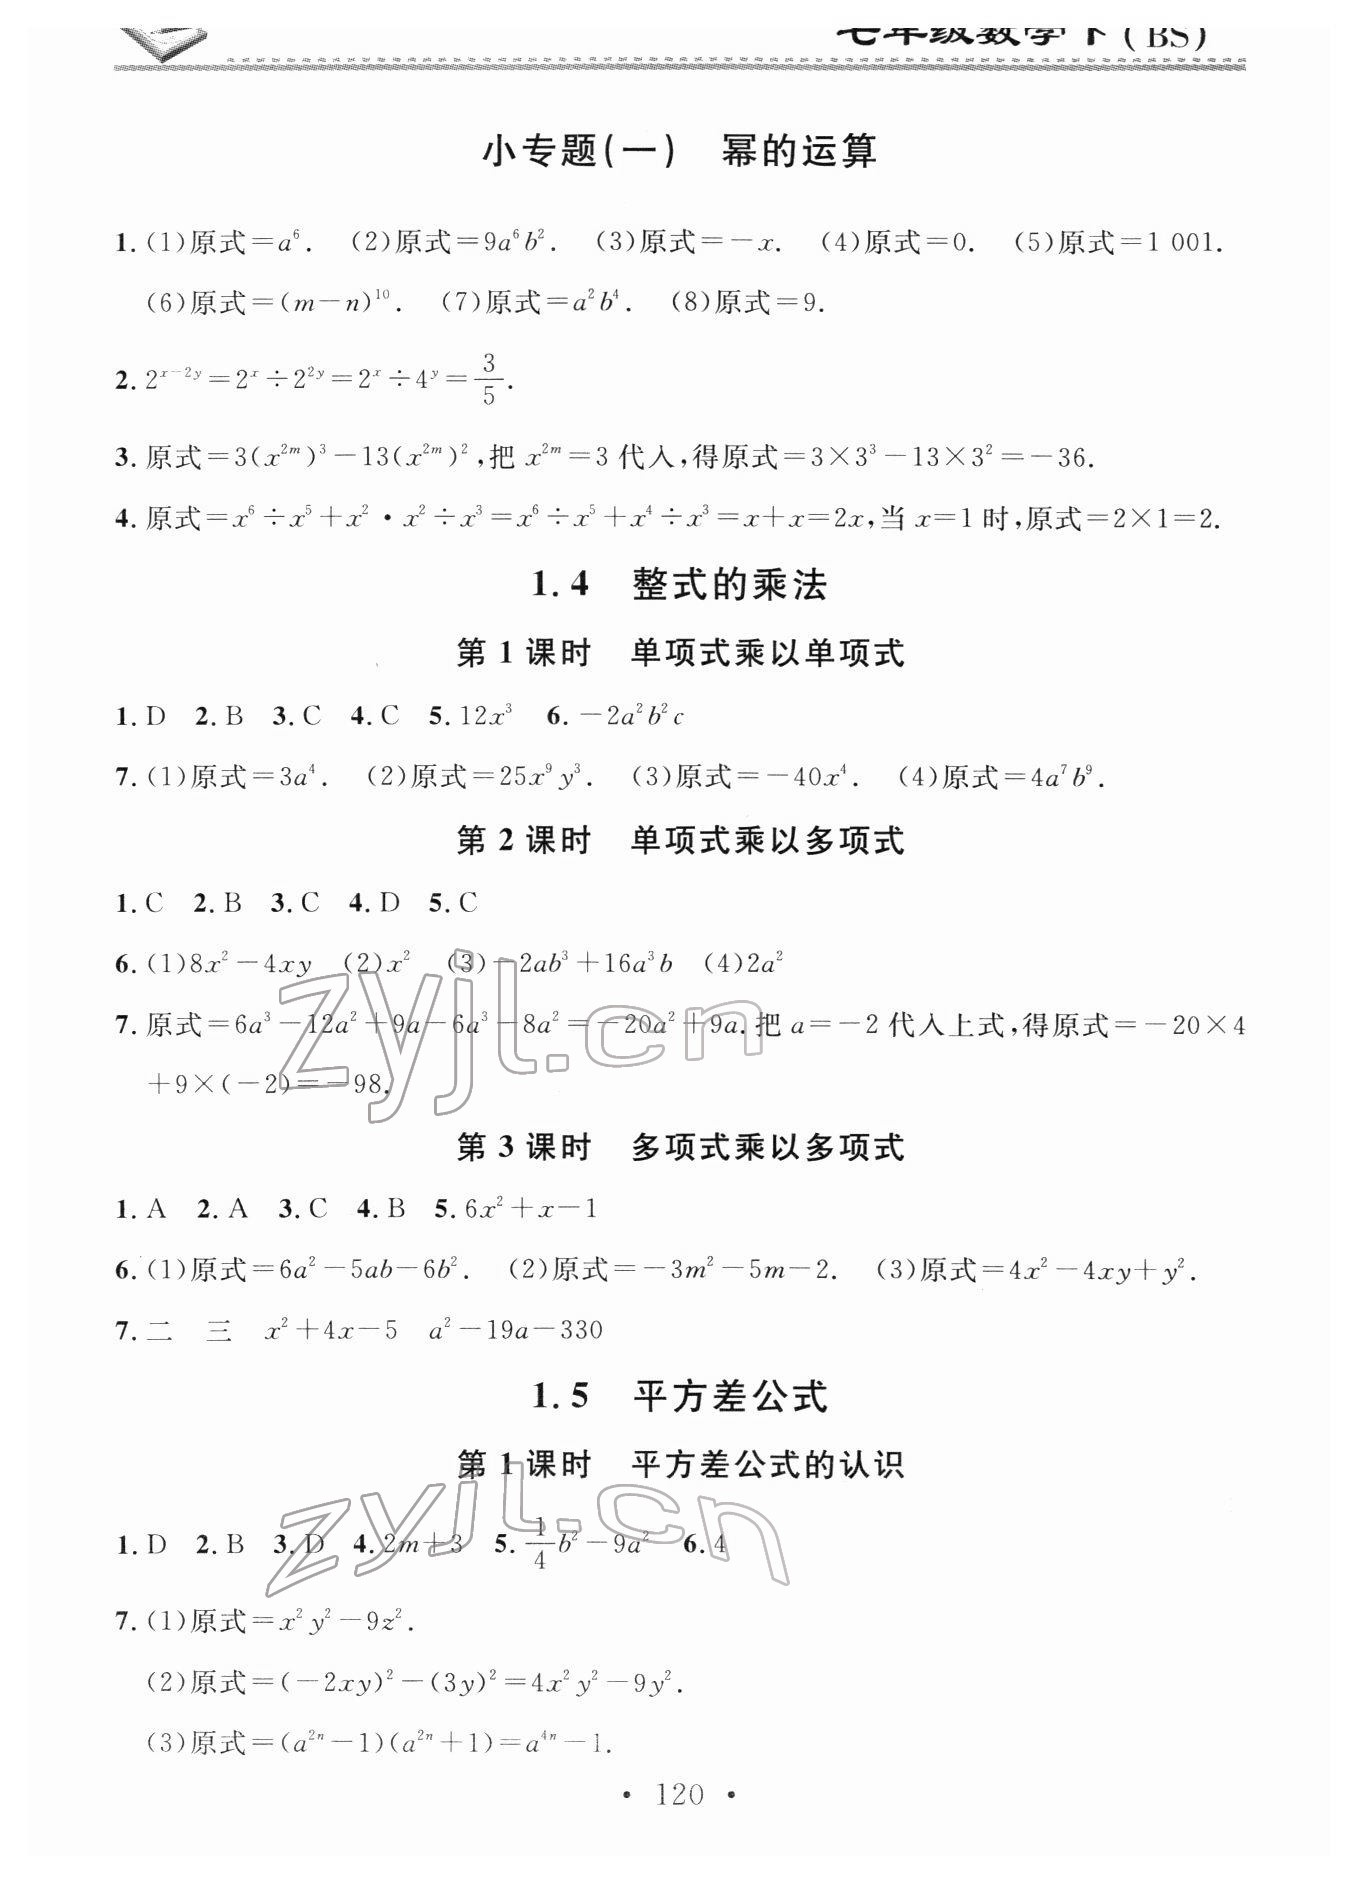 七年级数学下(BS)
小专题(一)　幂的运算
1. (1)原式=a⁶. (2)原式=9a⁶b². (3)原式=-x. (4)原式=0. (5)原式=1 001.
(6)原式=(m-n)¹⁰. (7)原式=a²b⁴. (8)原式=9.
2. 2^{x-2y}=2^x÷2^{2y}=2^x÷4^y=3/5.
3. 原式=3(x^{2m})³-13(x^{2m})²,把 x^{2m}=3 代入,得原式=3×3³-13×3²=-36.
4. 原式=x⁶÷x⁵+x²·x²÷x³=x⁶÷x⁵+x⁴÷x³=x+x=2x,当 x=1 时,原式=2×1=2.
1.4　整式的乘法
第 1 课时　单项式乘以单项式
1. D 2. B 3. C 4. C 5. 12x³ 6. -2a²b²c
7. (1)原式=3a⁴. (2)原式=25x⁹y³. (3)原式=-40x⁴. (4)原式=4a⁷b⁹.
第 2 课时　单项式乘以多项式
1. C 2. B 3. C 4. D 5. C
6. (1)8x²-4xy (2)x² (3)-2ab³+16a³b (4)2a²
7. 原式=6a³-12a²+9a-6a³-8a²=-20a²+9a. 把 a=-2 代入上式,得原式=-20×4
+9×(-2)=-98.
zyjl.cn
第 3 课时　多项式乘以多项式
1. A 2. A 3. C 4. B 5. 6x²+x-1
6. (1)原式=6a²-5ab-6b². (2)原式=-3m²-5m-2. (3)原式=4x²-4xy+y².
7. 二 三 x²+4x-5 a²-19a-330
1.5　平方差公式
第 1 课时　平方差公式的认识
zyjl.cn
1. D 2. B 3. D 4. 2m+3 5. 1/4b²-9a² 6. 4
7. (1)原式=x²y²-9z².
(2)原式=(-2xy)²-(3y)²=4x²y²-9y².
(3)原式=(a^{2n}-1)(a^{2n}+1)=a^{4n}-1.
· 120 ·